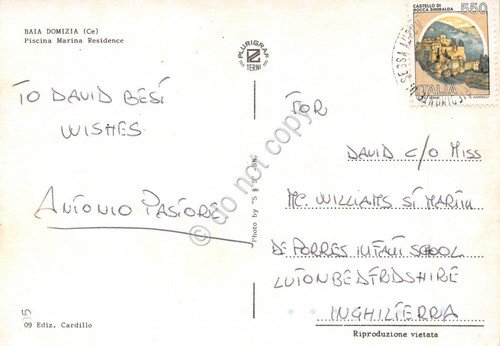 BAIA DOMIZIA (Ce)
Piscina Marina Residence
PLURIGRAF
TERNI
CASTELLO DI
ROCCA SINIBALDA
550
ITALIA
SESSA AUR
TO DAVID BEST
WISHES
ANTONIO PASTORE
Photo by "S & S" BN
FOR
DAVID C/O MISS
MC WILLIAMS ST MARTIN
DE PORRES INFANT SCHOOL
LUTON BEDFRDSHIRE
INGHILTERRA
do not copy
09 Ediz. Cardillo
Riproduzione vietata